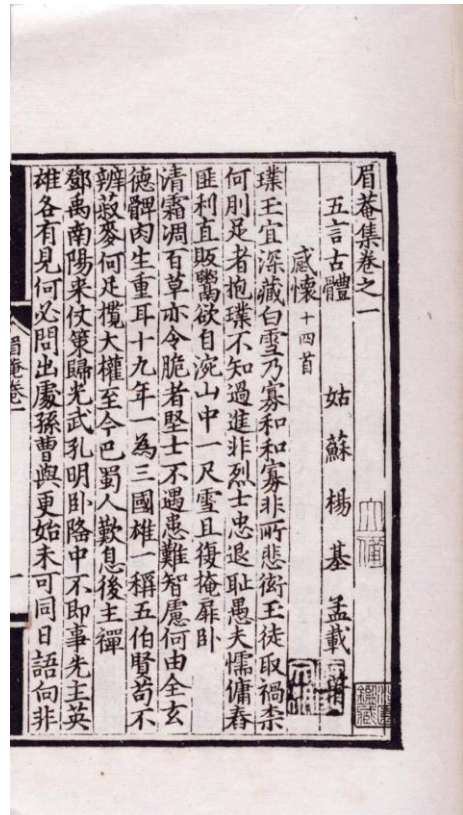 眉菴集卷之一
五言古體 姑蘇楊基孟載
感懷十四首
璞玉宜深藏白雪乃寡和和寡非所悲衒玉徒取禍柰
何刖足者抱璞不知過進非烈士忠退耻愚夫懦傭舂
匪利直販鬻欲自浼山中一尺雪且復掩扉卧
清霜凋百草亦令脆者堅士不遇患難智慮何由全玄
德髀肉生重耳十九年一為三國雄一稱五伯賢苟不
辨菽麥何足攬大權至今巴蜀人歎息後主禪
鄧禹南陽来仗策歸光武孔明卧隆中不即事先主英
雄各有見何必問出處孫曹與更始未可同日語向非
眉菴卷一